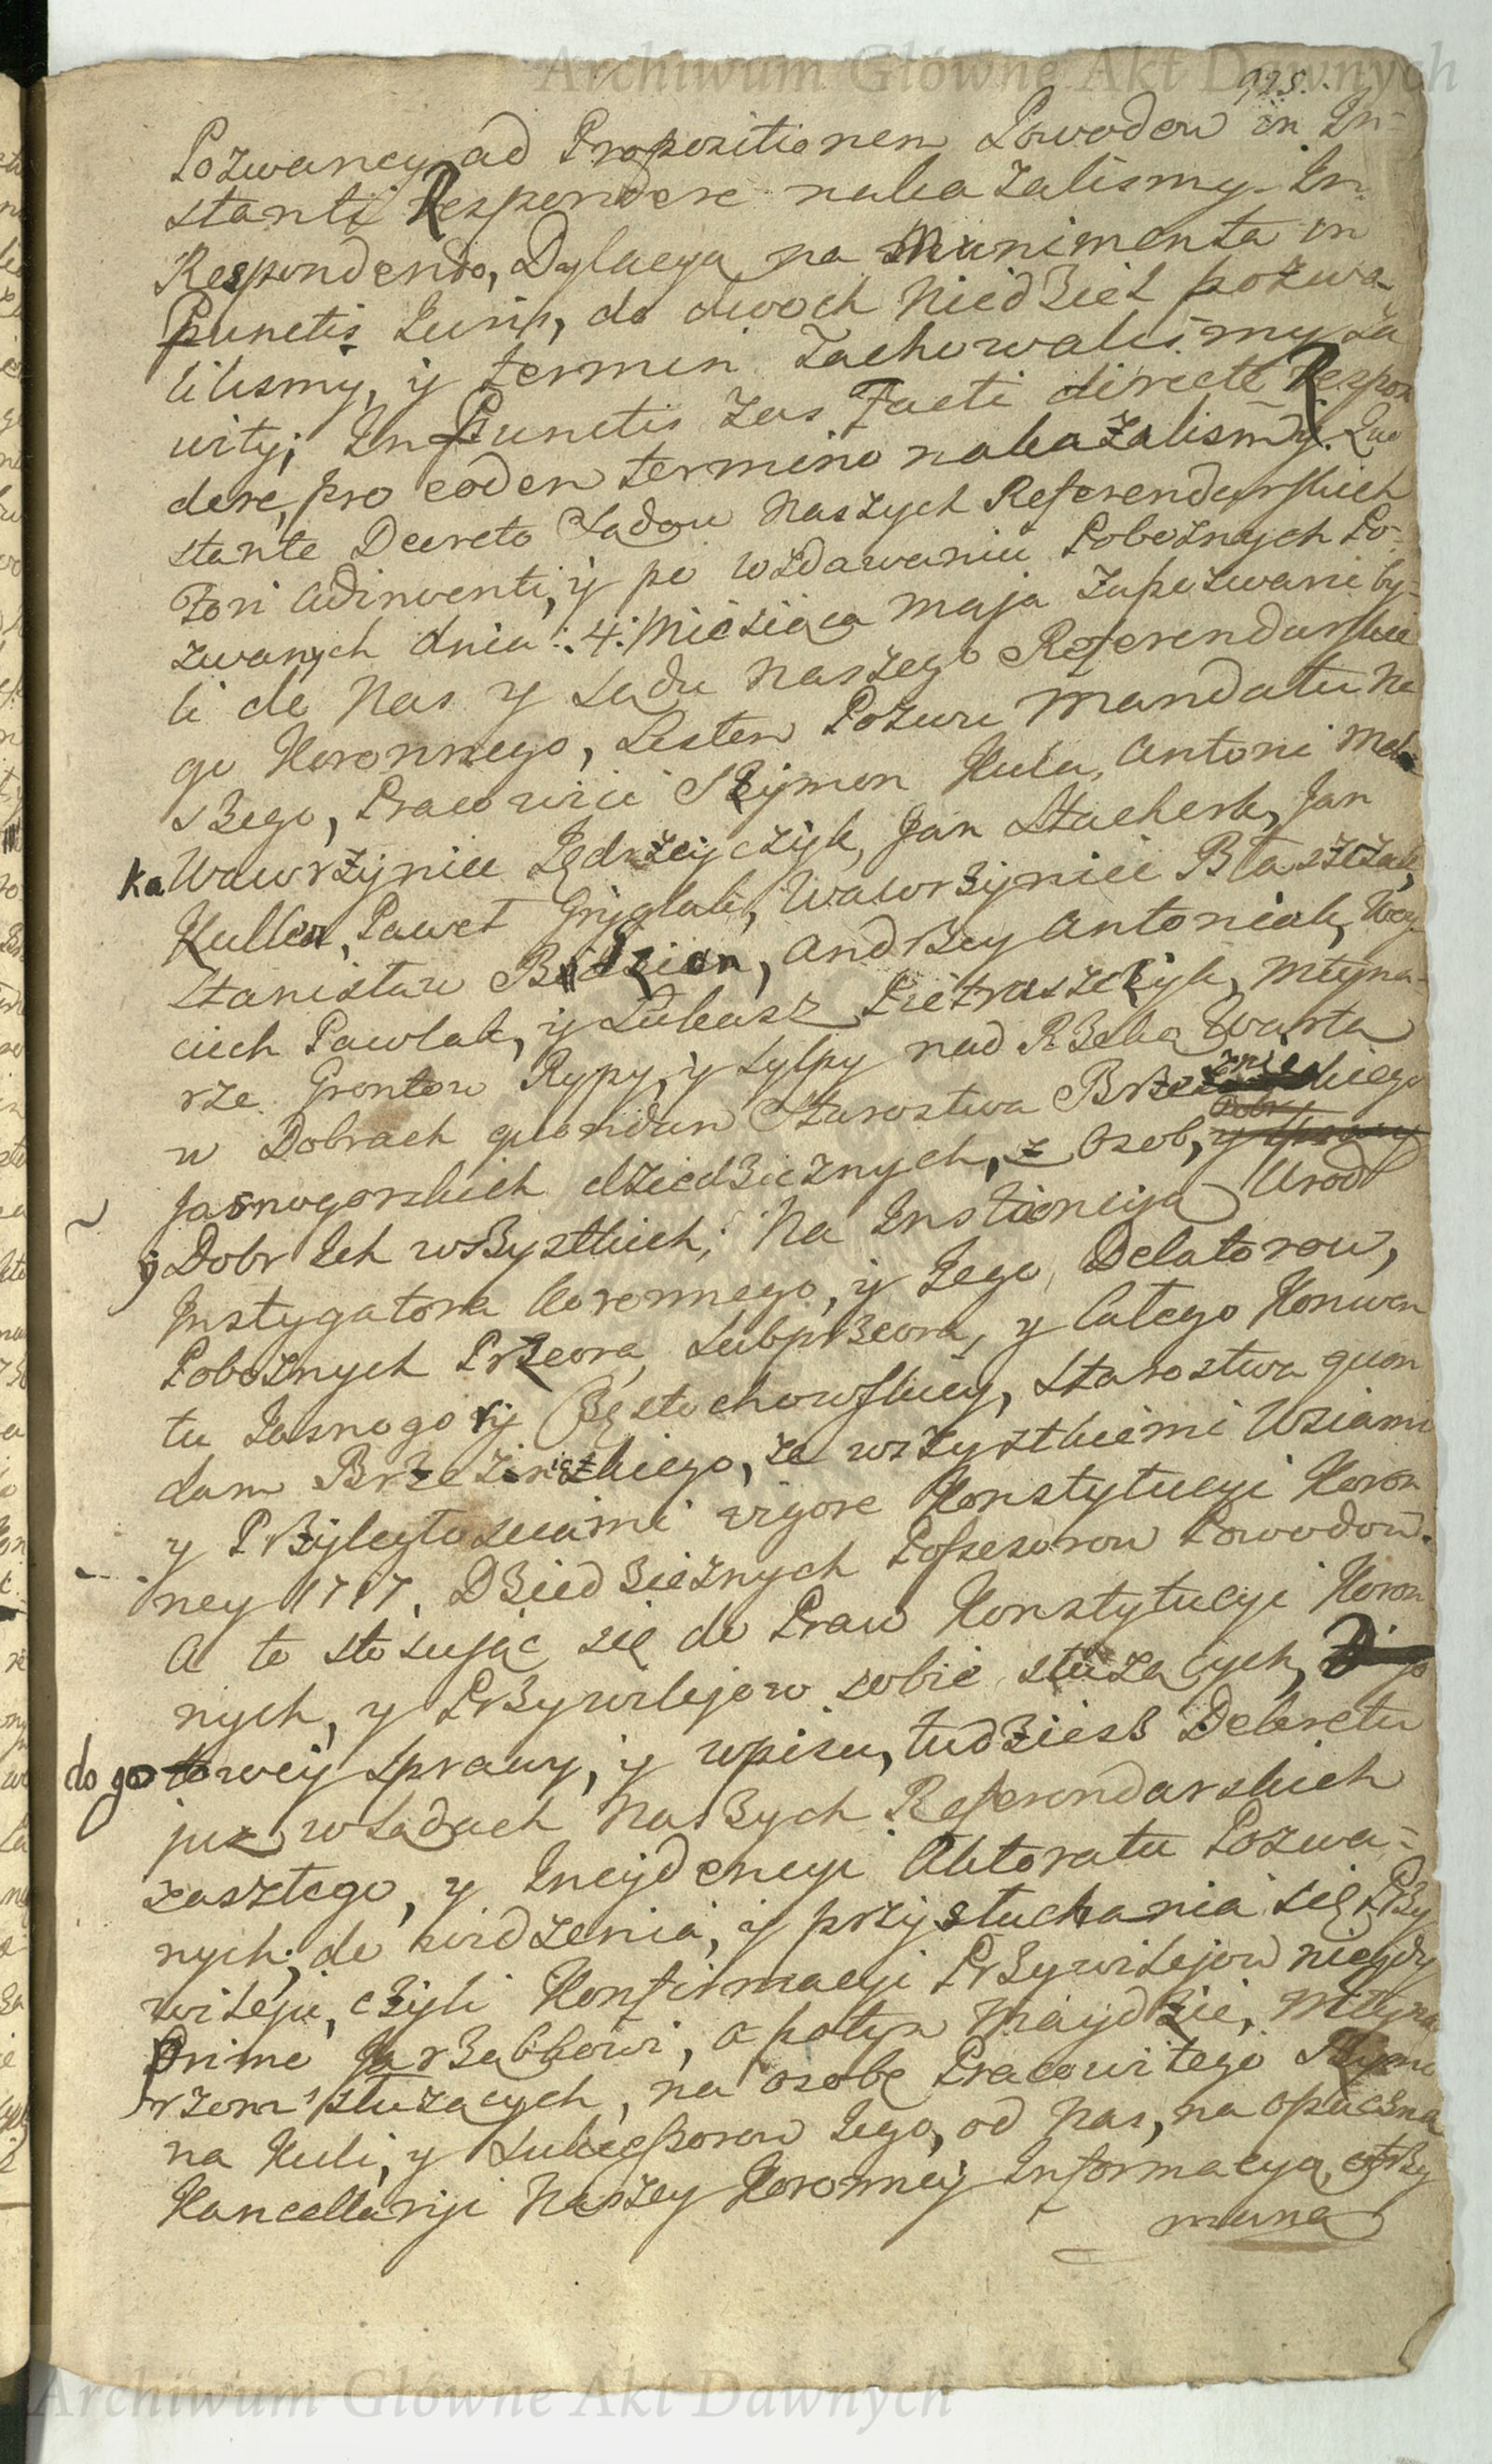 Archiwum Główne Akt Dawnych
925.
Pozwaney ad Propositionem Powodow in In-
stanti Respondere nakazalismy. In
Respondendo, Dylacya na Munimenta in
Punctis Juris, do dwoch Niedziel pozwa-
lilismy, y termin zachowalismy za
wity; In Punctis zas Facti directe Respon
dere, pro eodem termino nakazalismy. Quo
stante Decreto Sądow Naszych Referendarskich
Tori adinventi, y po wzdawaniu Pobożnych Po-
zwanych dnia: 4: Miesiąca Maja zapozwani by-
li do Nas y Sądu Naszego Referendarskie
go Koronnego, Listem Pozwu Mandatu Na
szego, Pracowici Szymon Kula, Antoni Mat
ka Wawrzyniec Jędrzeyczyk, Jan Stacherk, Jan
Kulka, Paweł Gryglak, Wawrzyniec Błaszczak,
Stanisław Badzian, Andrzey Antoniak, Woy-
ciech Pawlak, y Łukasz Pietraszczyk, Młyna-
rze Grontow Kypy, y Sylpy nad Rzeką Wartą
w Dobrach quondam Starostwa Brzeznickiego
Jasnogorskich dziedzicznych, z Osob,
y Dobr Ich wszystkich; Na Instancyją Urodł
Instygatora Koronnego, y Jego Delatorow,
Pobożnych Przeora, Subprzeora, y Całego Konwen
tu Jasnogory Częstochowskiey, Starostwa quon
dam Brzeznickiego, ze wszystkiemi Wsiami
y Przyległosciami vigore Konstytucyi Koron
ney 1717. Dziedzicznych Possessorow Powodow.
A to stosując się do Praw Konstytucyi Koron
nych, y Przywilejow sobie służących,
do gotowey Sprawy, y wpisu, tudziesz Dekretu
juz w Sądach Naszych Referendarskich
zaszłego, y Incydencyi Aktoratu Pozwa-
nych; do widzenia, y przysłuchania się Przy
wileju, czyli Konfirmacyi Przywilejow niegdy
Prime Jarząbkowi, a potym Maydzie, Młyna
rzom służących, na osobę Pracowitego Szymo
na Kuli, y Sukcessorow Jego, od Nas, na opaczną
Kancellaryi Naszey Koronney Informacyą, otrzy
maną
Archiwum Główne Akt Dawnych